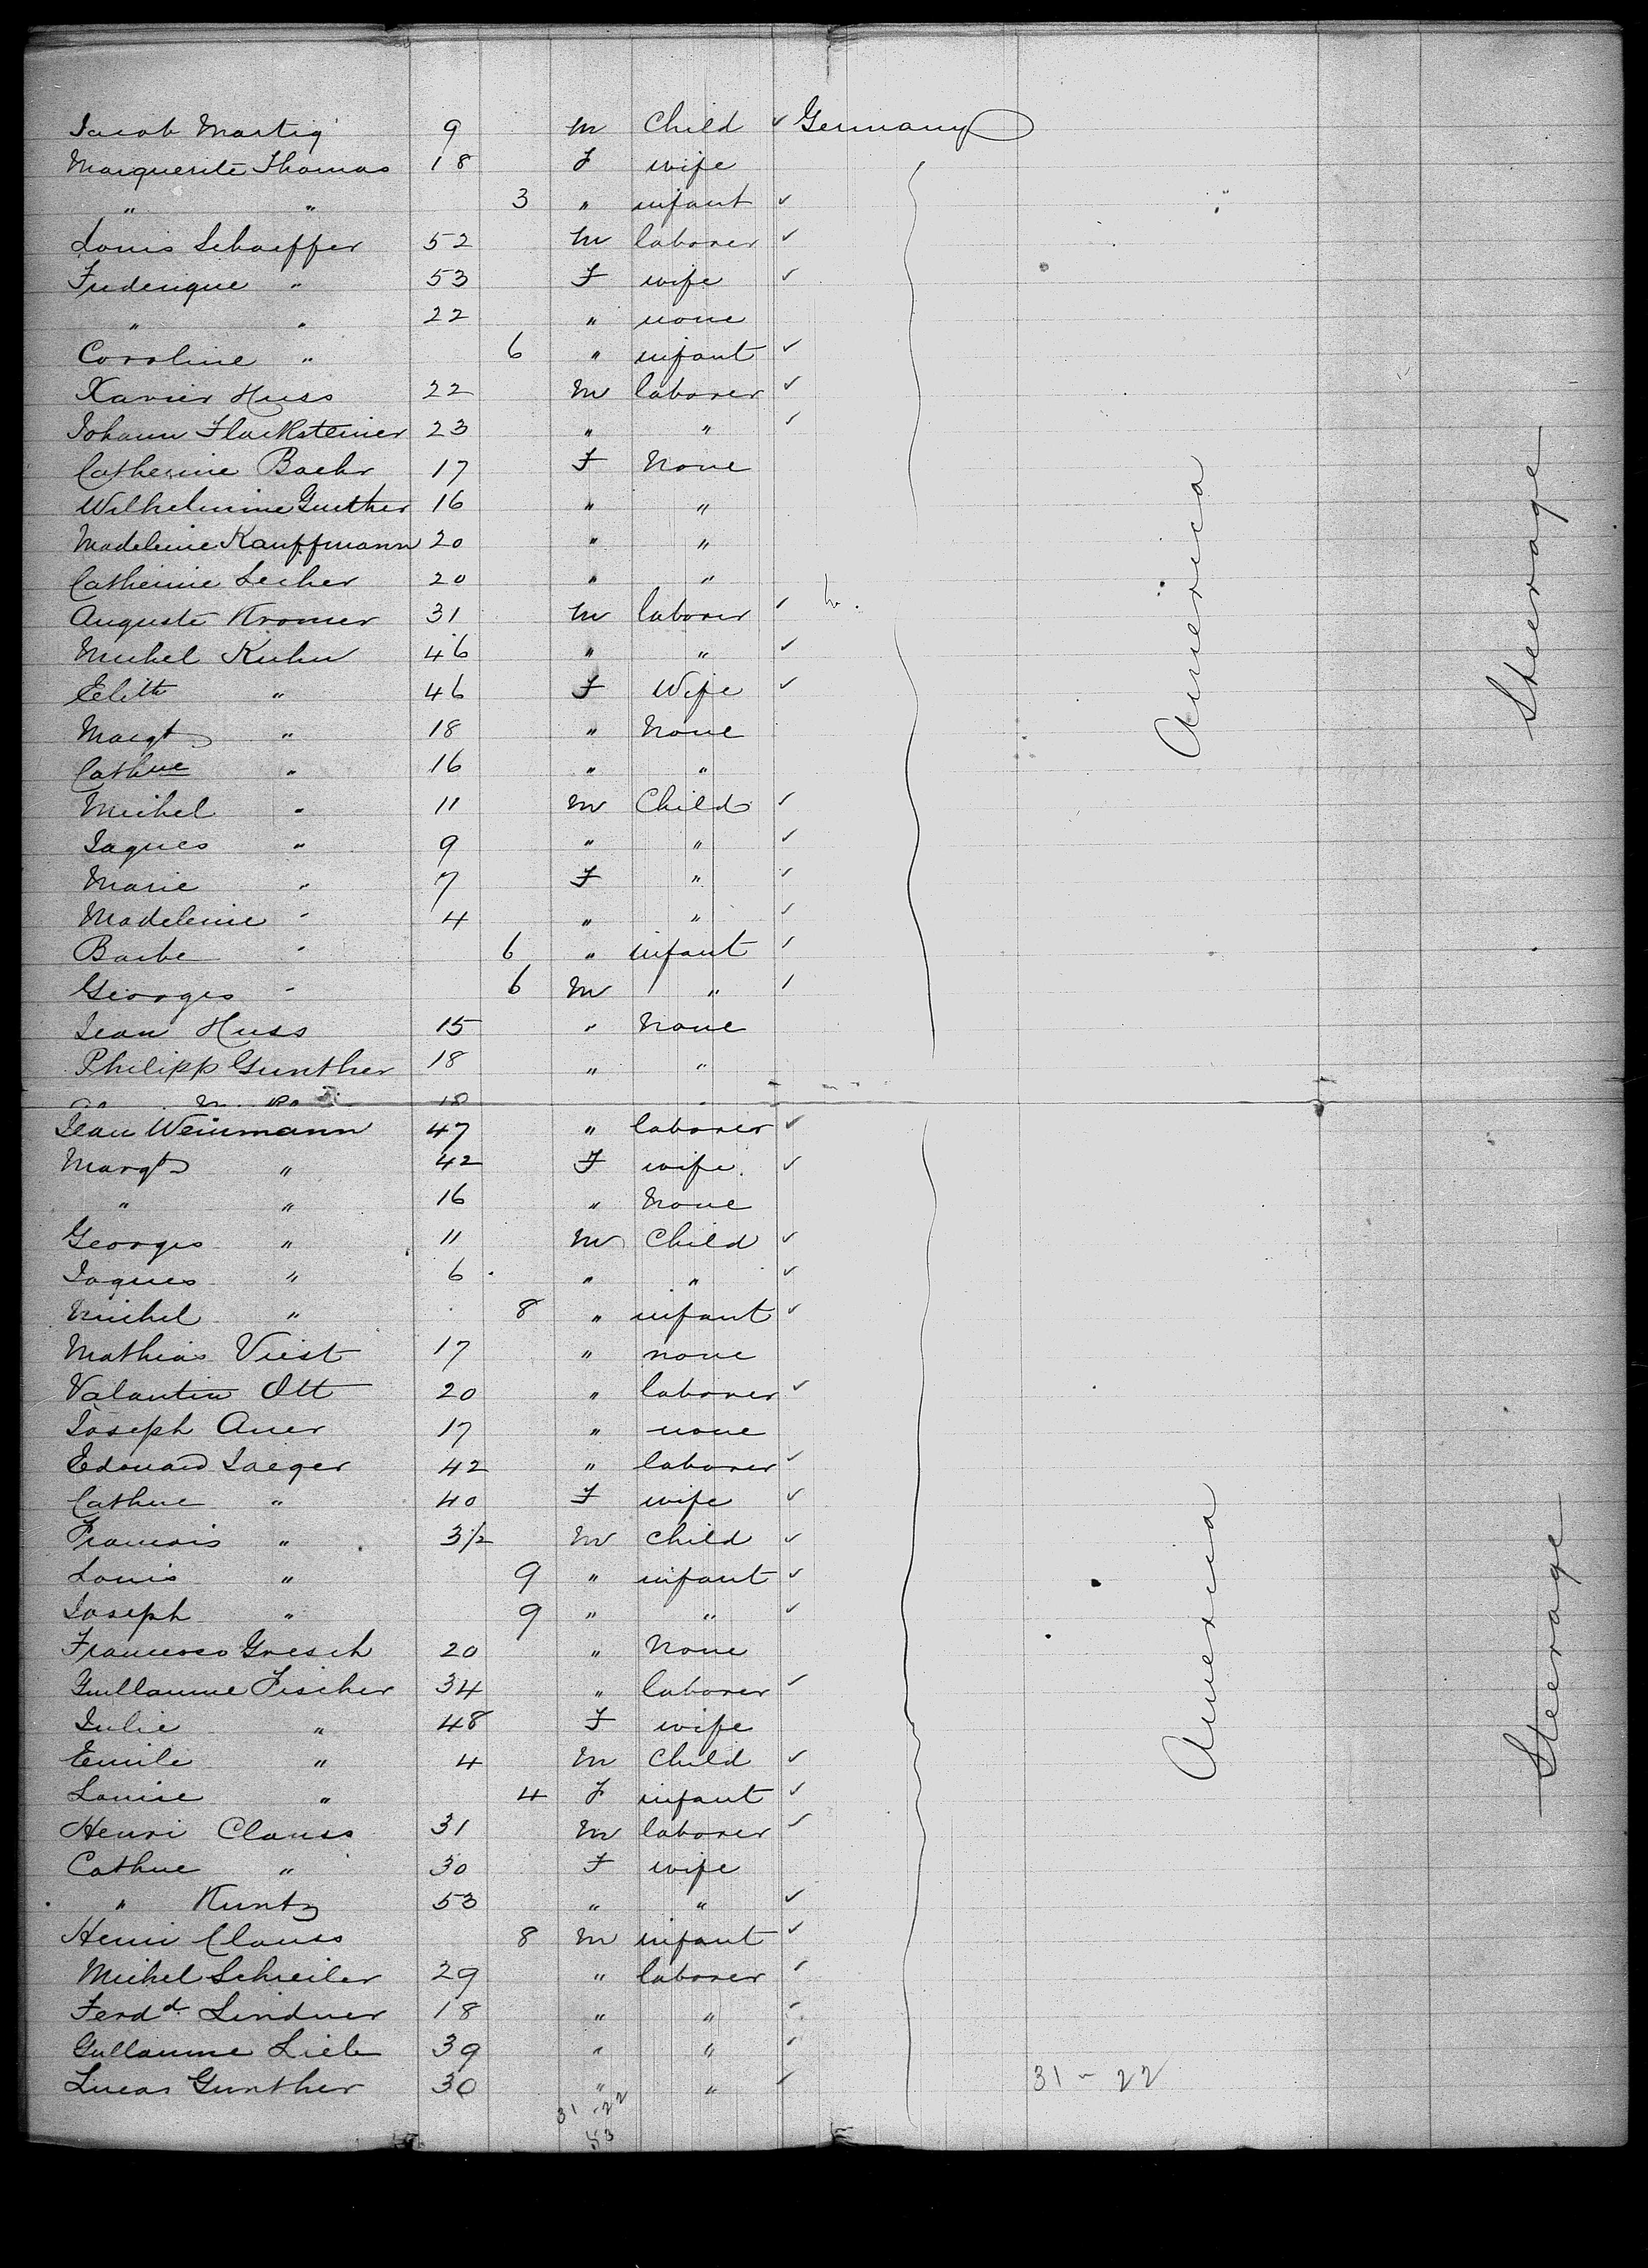 Jacob Martig 9 m Child ✓ Germany
Marguerite Thomas 18 F wife
" " 3 " infant ✓
Louis Schaeffer 52 m laborer ✓
Frederique " 53 F wife ✓
" " 22 " none
Caroline " 6 " infant ✓
Xavier Huss 22 m laborer ✓
Johann Flacksteiner 23 " " ✓
Catherine Baehr 17 F None
Wilhelmine Gunther 16 " "
Madeleine Kauffmann 20 " "
Catherine Lecher 20 " "
Auguste Kromer 31 m laborer ✓
Michel Kuhn 46 " " ✓
Elith " 46 F Wife ✓
Margt " 18 " None
Cathne " 16 " "
Michel " 11 m Child ✓
Jaques " 9 " " ✓
Marie " 7 F " ✓
Madeleine " 4 " " ✓
Barbe " 6 " infant ✓
Georges " 6 m " ✓
Jean Huss 15 " None
Philipp Gunther 18 " "
18 "
Jean Weinmann 47 " laborer ✓
Margt " 42 F wife ✓
" " 16 " None
Georges " 11 m Child ✓
Jaques " 6 " " ✓
Michel " 8 " infant ✓
Mathias Viest 17 " none
Valantin Ott 20 " laborer ✓
Joseph Auer 17 " none
Edouard Jaeger 42 " laborer ✓
Cathne " 40 F wife ✓
Francois " 3½ m Child ✓
Louis " 9 " infant ✓
Joseph " 9 " " ✓
Francesco Gresch 20 " None
Guillaume Fischer 34 " laborer ✓
Julie " 48 F wife
Emile " 4 m Child ✓
Louise " 4 F infant ✓
Henri Clauss 31 m laborer ✓
Cathne " 30 F wife
" Kuntz 53 " " ✓
Henri Clauss 8 m infant ✓
Michel Schreiler 29 " laborer ✓
Ferdd. Lindner 18 " " ✓
Gullaume Lieb 39 " " ✓
Lucas Gunther 30 " " ✓ 31 - 22
31 - 22
53
America
Steerage
America
Steerage